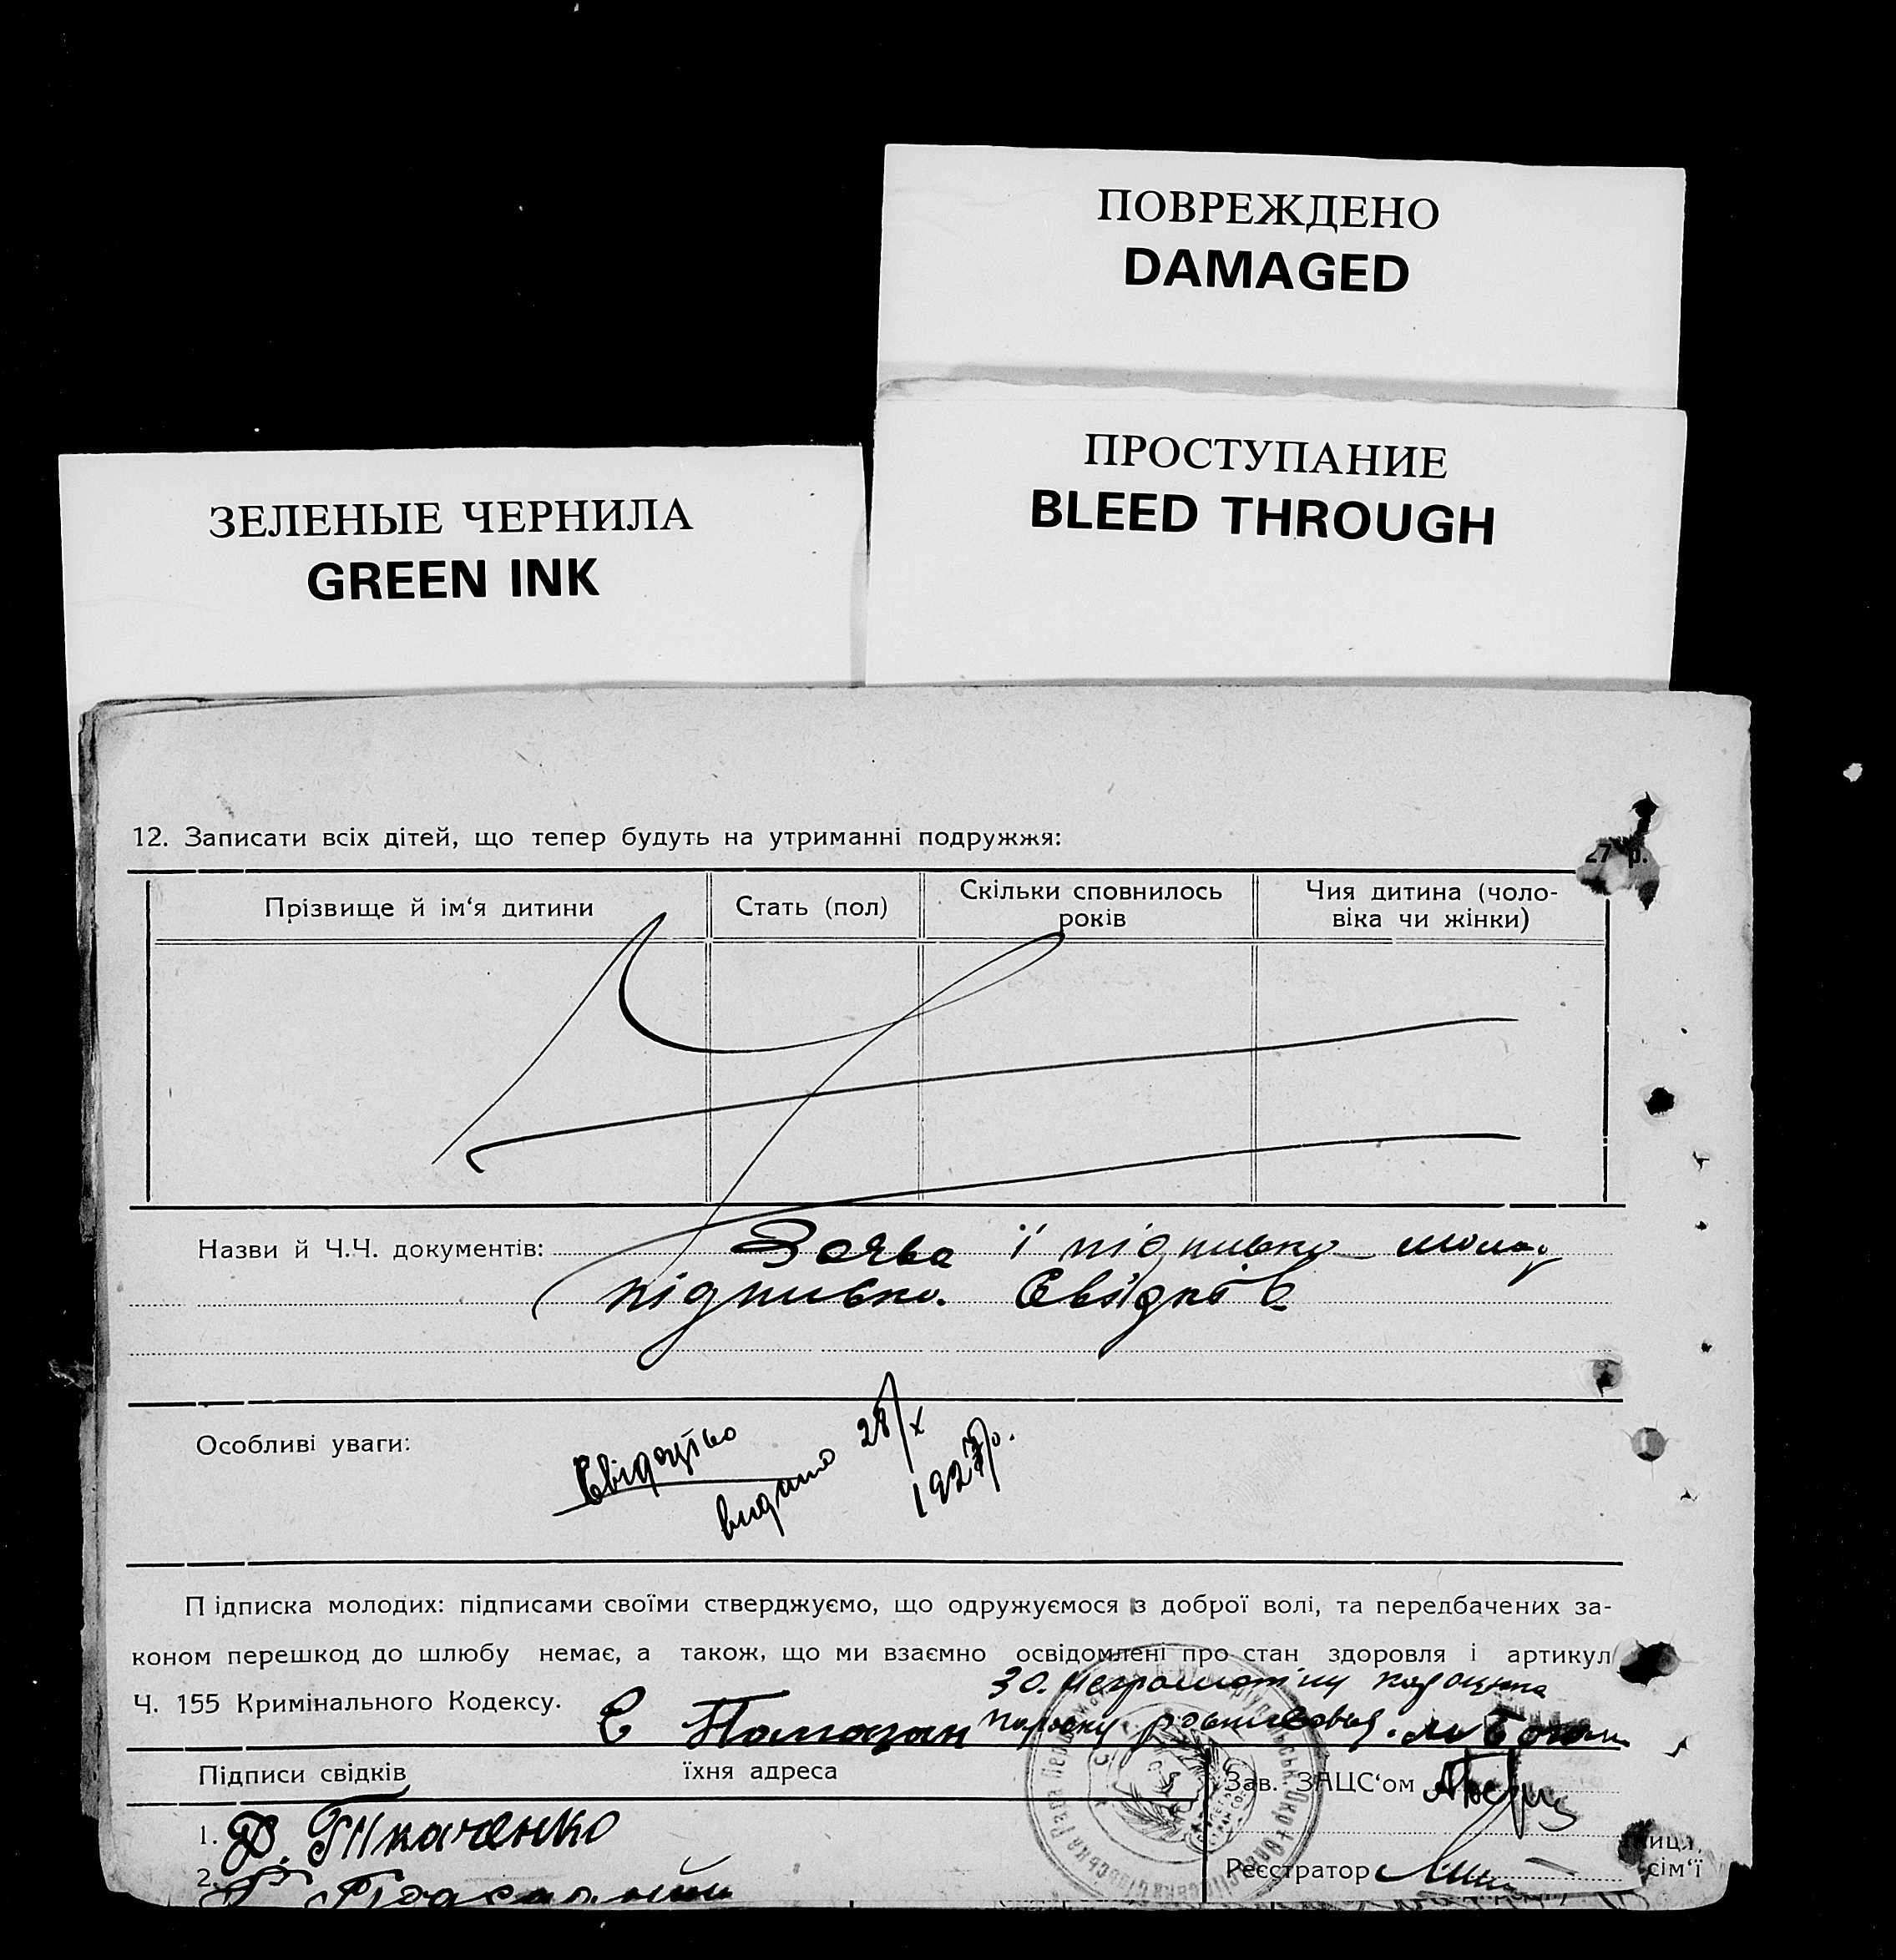 ПОВРЕЖДЕНО
DAMAGED
ПРОСТУПАНИЕ
BLEED THROUGH
ЗЕЛЕНЫЕ ЧЕРНИЛА
GREEN INK
12. Записати всіх дітей, що тепер будуть на утриманні подружжя:
27 р.
Прізвище й ім‘я дитини
Стать (пол)
Скільки сповнилось
років
Чия дитина (чоло-
віка чи жінки)
Назви й Ч.Ч. документів: Заява і підписка
підписка Свідків
Особливі уваги:
Свідоцтво
видано 28/X
1927р.
П ідписка молодих: підписами своїми стверджуємо, що одружуємося з доброї волі, та передбачених за-
коном перешкод до шлюбу немає, а також, що ми взаємно освідомлені про стан здоровля і артикул
Ч. 155 Кримінального Кодексу.
Підписи свідків
їхня адреса
Зав. ЗАЦС‘ом
1. Д. Ткаченко
2.
Реєстратор
сім‘ї